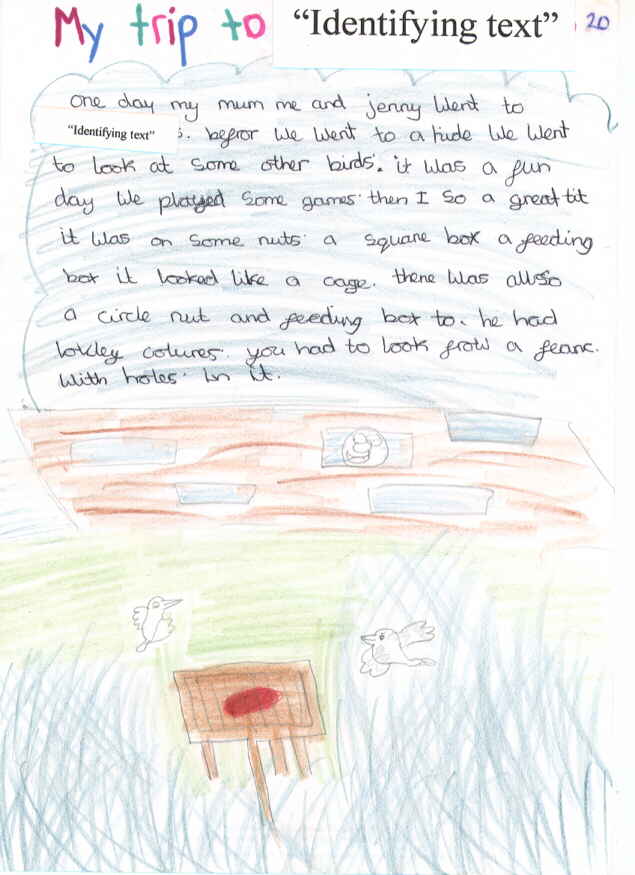 My trip to “Identifying text” 20
one day my mum me and jenny went to
“Identifying text” s. befror we went to a hide we went
to look at some other birds. it was a fun
day we played some games then I so a great tit
it was on some nuts a square box a feeding
box it looked like a cage. there was allso
a circle nut and feeding box to. he had
colures. you had to look frow a feanc.
with holes in it.